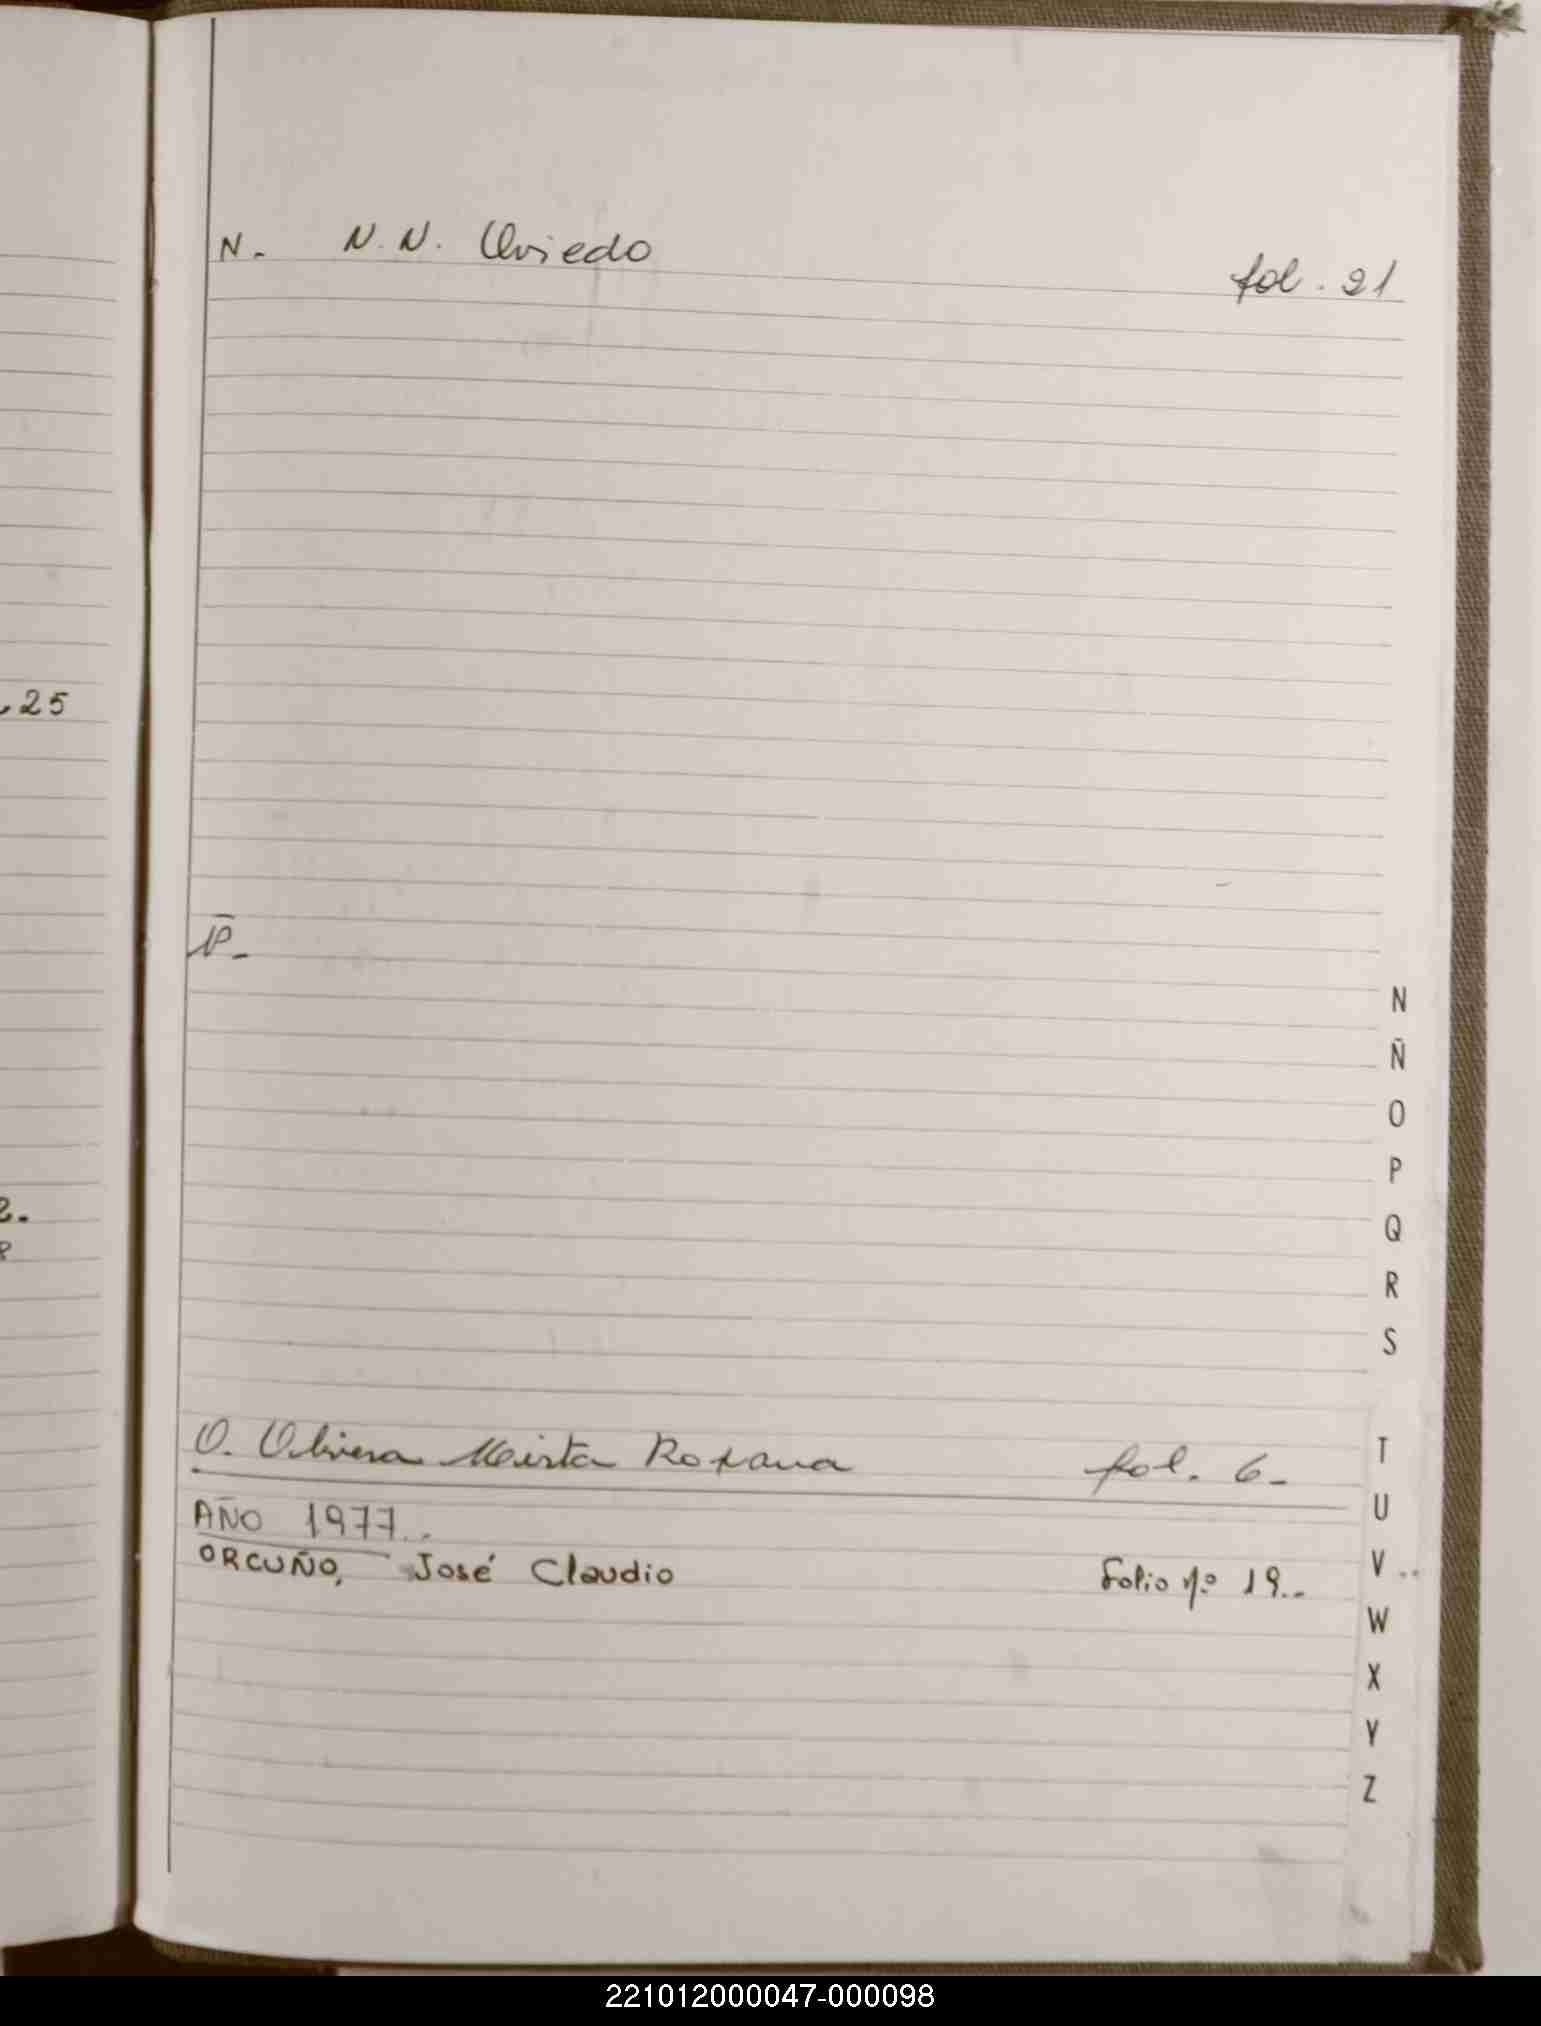 N. N.N. Oviedo
fol. 21
.25
Ñ.
2.
O. Olivera Mirta Roxana fol. 6.
AÑO 1977..
ORCUÑO, José Claudio Folio nº 19..
N
Ñ
O
P
Q
R
S
T
U
V
W
X
Y
Z
221012000047-000098